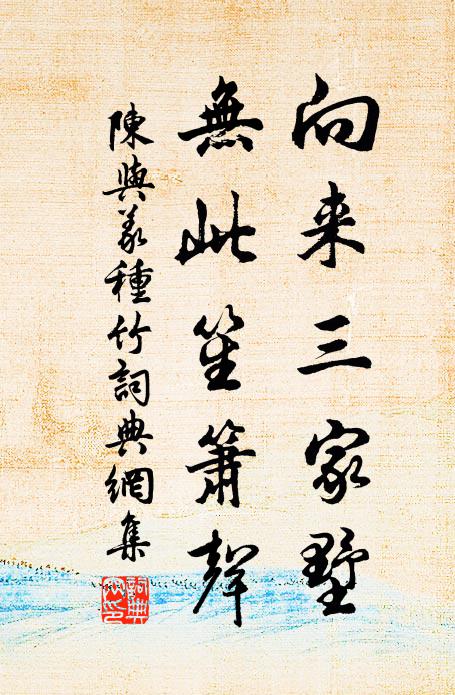 向来三家墅
無此笙簫聲
陳與義種竹詞典網集